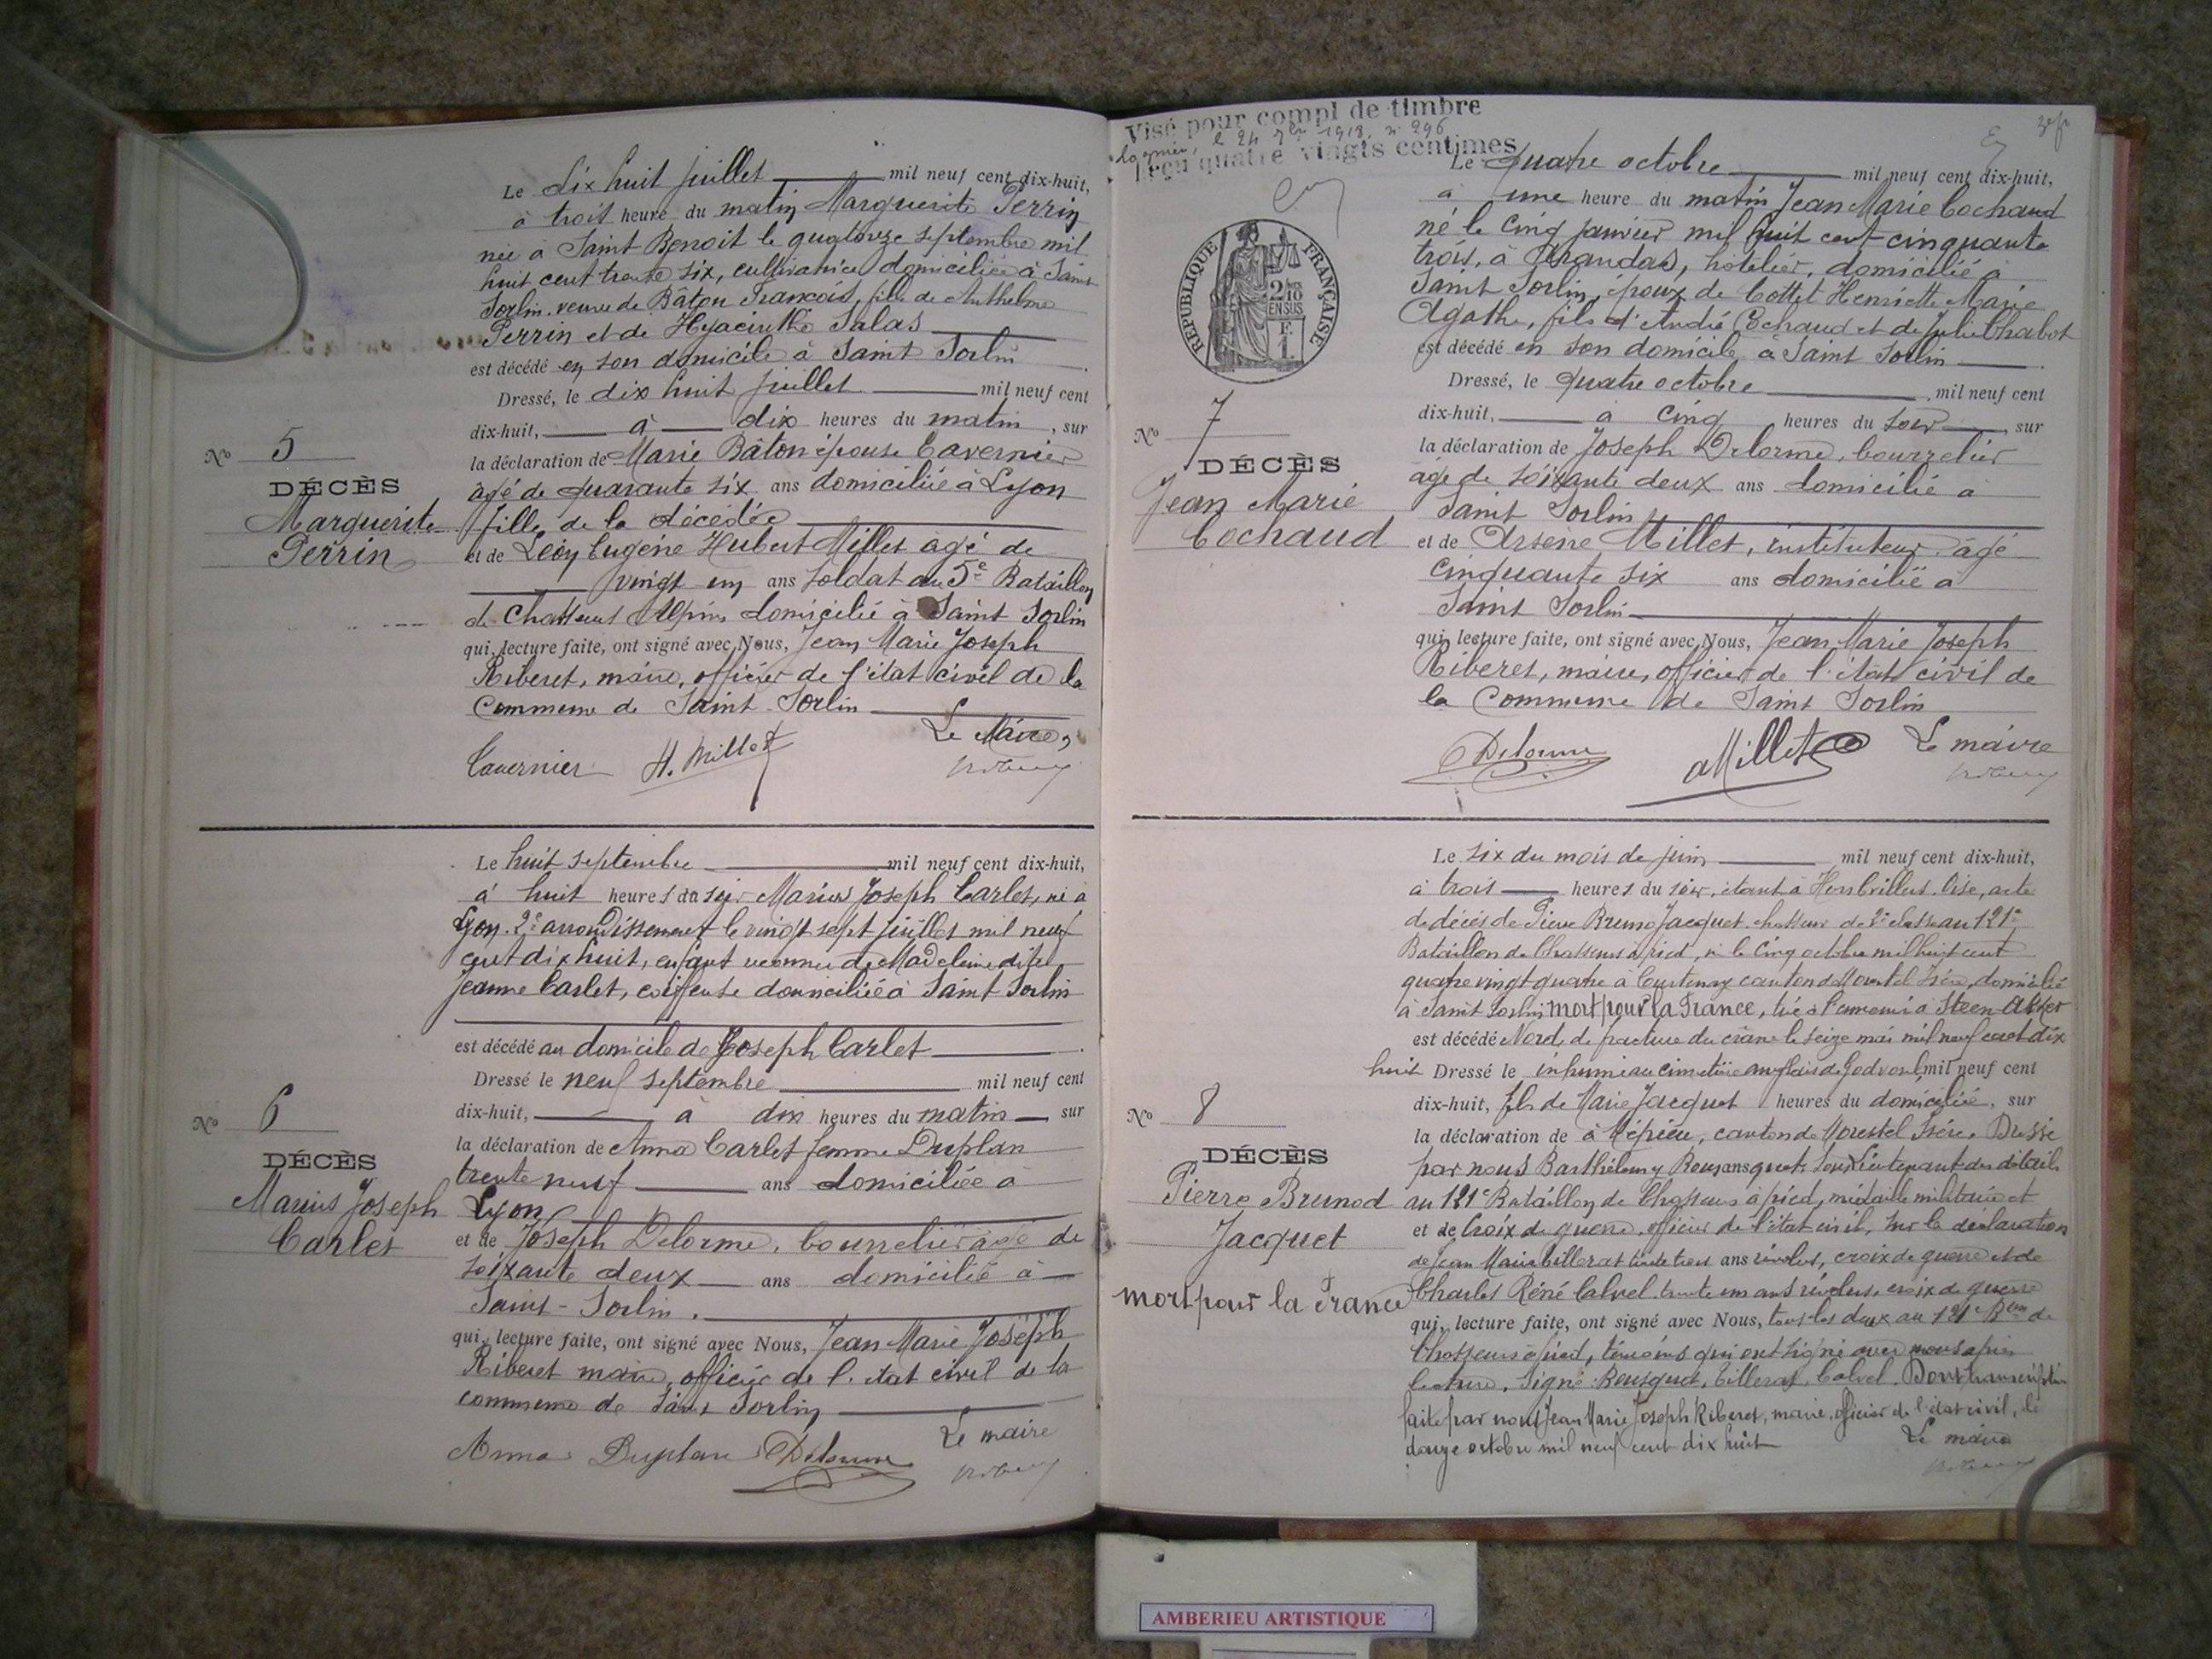 Le dix huit juillet mil neuf cent dix-huit,
à trois heure du matin Marguerite Perrin
née à Saint Benoit le quatorze septembre mil
huit cent trente six, cultivatrice domiciliée à Saint
Sorlin, veuve de Bâton François, fille de Anthelme
Perrin et de Hyacinthe Salas
est décédé en son domicile à Saint Sorlin
Dressé, le dix huit juillet mil neuf cent
dix-huit, à dix heures du matin, sur
la déclaration de Marie Bâton épouse Tavernier
âgé de quarante six ans domiciliée à Lyon
fille de la décédée
et de Léon Eugène Hubert Millet agé de
vingt un ans soldat au 5e Bataillon
de Chasseurs Alpins domicilié à Saint Sorlin
qui, lecture faite, ont signé avec Nous, Jean Marie Joseph
Riberet, maire, officier de l'état civil de la
Commune de Saint-Sorlin
Le Maire,
Tavernier H. Millet
No 5
DÉCÈS
Marguerite
Perrin
Le huit septembre mil neuf cent dix-huit,
à huit heures du soir Marius Joseph Carlet, né à
Lyon. 2e arrondissement le vingt sept juillet mil neuf
cent dix huit, enfant reconnu de Madeleine dite
Jeanne Carlet, coiffeuse domiciliée à Saint Sorlin
est décédé au domicile de Joseph Carlet
Dressé le neuf septembre mil neuf cent
dix-huit, à dix heures du matin sur
la déclaration de Anna Carlet femme Duplan
trente neuf ans domiciliée à
Lyon
et de Joseph Delorme, bourrelier âgé de
soixante deux ans domicilié à
Saint-Sorlin.
qui, lecture faite, ont signé avec Nous, Jean Marie Joseph
Riberet maire, officier de l'état civil de la
commune de Saint Sorlin
Le maire
Anna Duplan Delorme
No 6
DÉCÈS
Marius Joseph
Carlet
Visé pour compl de timbre
le 24 1918, n 296
reçu quatre vingts centimes
REPUBLIQUE FRANÇAISE
2/10
EN SUS
F.
1.
Le quatre octobre mil neuf cent dix-huit,
à une heure du matin Jean Marie Cochaud
né le cinq janvier mil huit cent cinquante
trois, à Arandas, hôtelier, domicilié à
Saint Sorlin, époux de Cottet Henriette Marie
Agathe, fils d'André Cochaud et de Julie Chabot
est décédé en son domicile à Saint Sorlin
Dressé, le quatre octobre mil neuf cent
dix-huit, à cinq heures du soir, sur
la déclaration de Joseph Delorme, bourrelier
âgé de soixante deux ans domicilié à
Saint Sorlin
et de Arsene Millet, instituteur âgé
cinquante six ans domicilié à
Saint Sorlin
qui, lecture faite, ont signé avec Nous, Jean Marie Joseph
Riberet, maire, officier de l'état civil de
la Commune de Saint Sorlin
Delorme AMillet Le maire
No 7
DÉCÈS
Jean Marie
Cochaud
Le six du mois de juin mil neuf cent dix-huit,
à trois heures du soir, étant à Oise, acte
de décès de Pierre Bruno Jacquet chasseur de 2e classe au 121e
Bataillon de Chasseurs à pied, né le cinq octobre mil huit cent
quatre vingt quatre à Courtenay canton de Morestel Isère, domicilié
à Saint Sorlin, mort pour la France, tué à l'ennemi à Steen-Akker
est décédé Nord, de fracture du crâne le seize mai mil neuf cent dix
huit Dressé le inhumé au cimetière anglais de mil neuf cent
dix-huit, fils de Marie Jacquet heures du domiciliée, sur
la déclaration de à Vépieu, canton de Morestel Isère. Dressé
par nous Barthélemy sous lieutenant des détails
au 121e Bataillon de Chasseurs à pied, médaille militaire et
et de Croix de guerre, officier de l'état civil, sur la déclaration
de Jean Marie trente trois ans révolus, croix de guerre et de
Charles Réné Calvel trente un ans révolus, croix de guerre
qui, lecture faite, ont signé avec Nous, tous les deux au 121e Bon de
Chasseurs à pied, témoins qui ont signé avec nous après
lecture. Signé: Calvel. Dont transcription
faite par nous Jean Marie Joseph Riberet, maire, officier de l'état civil, le
douze octobre mil neuf cent dix huit Le maire
No 8
DÉCÈS
Pierre Brunod
Jacquet
mort pour la France
AMBERIEU ARTISTIQUE